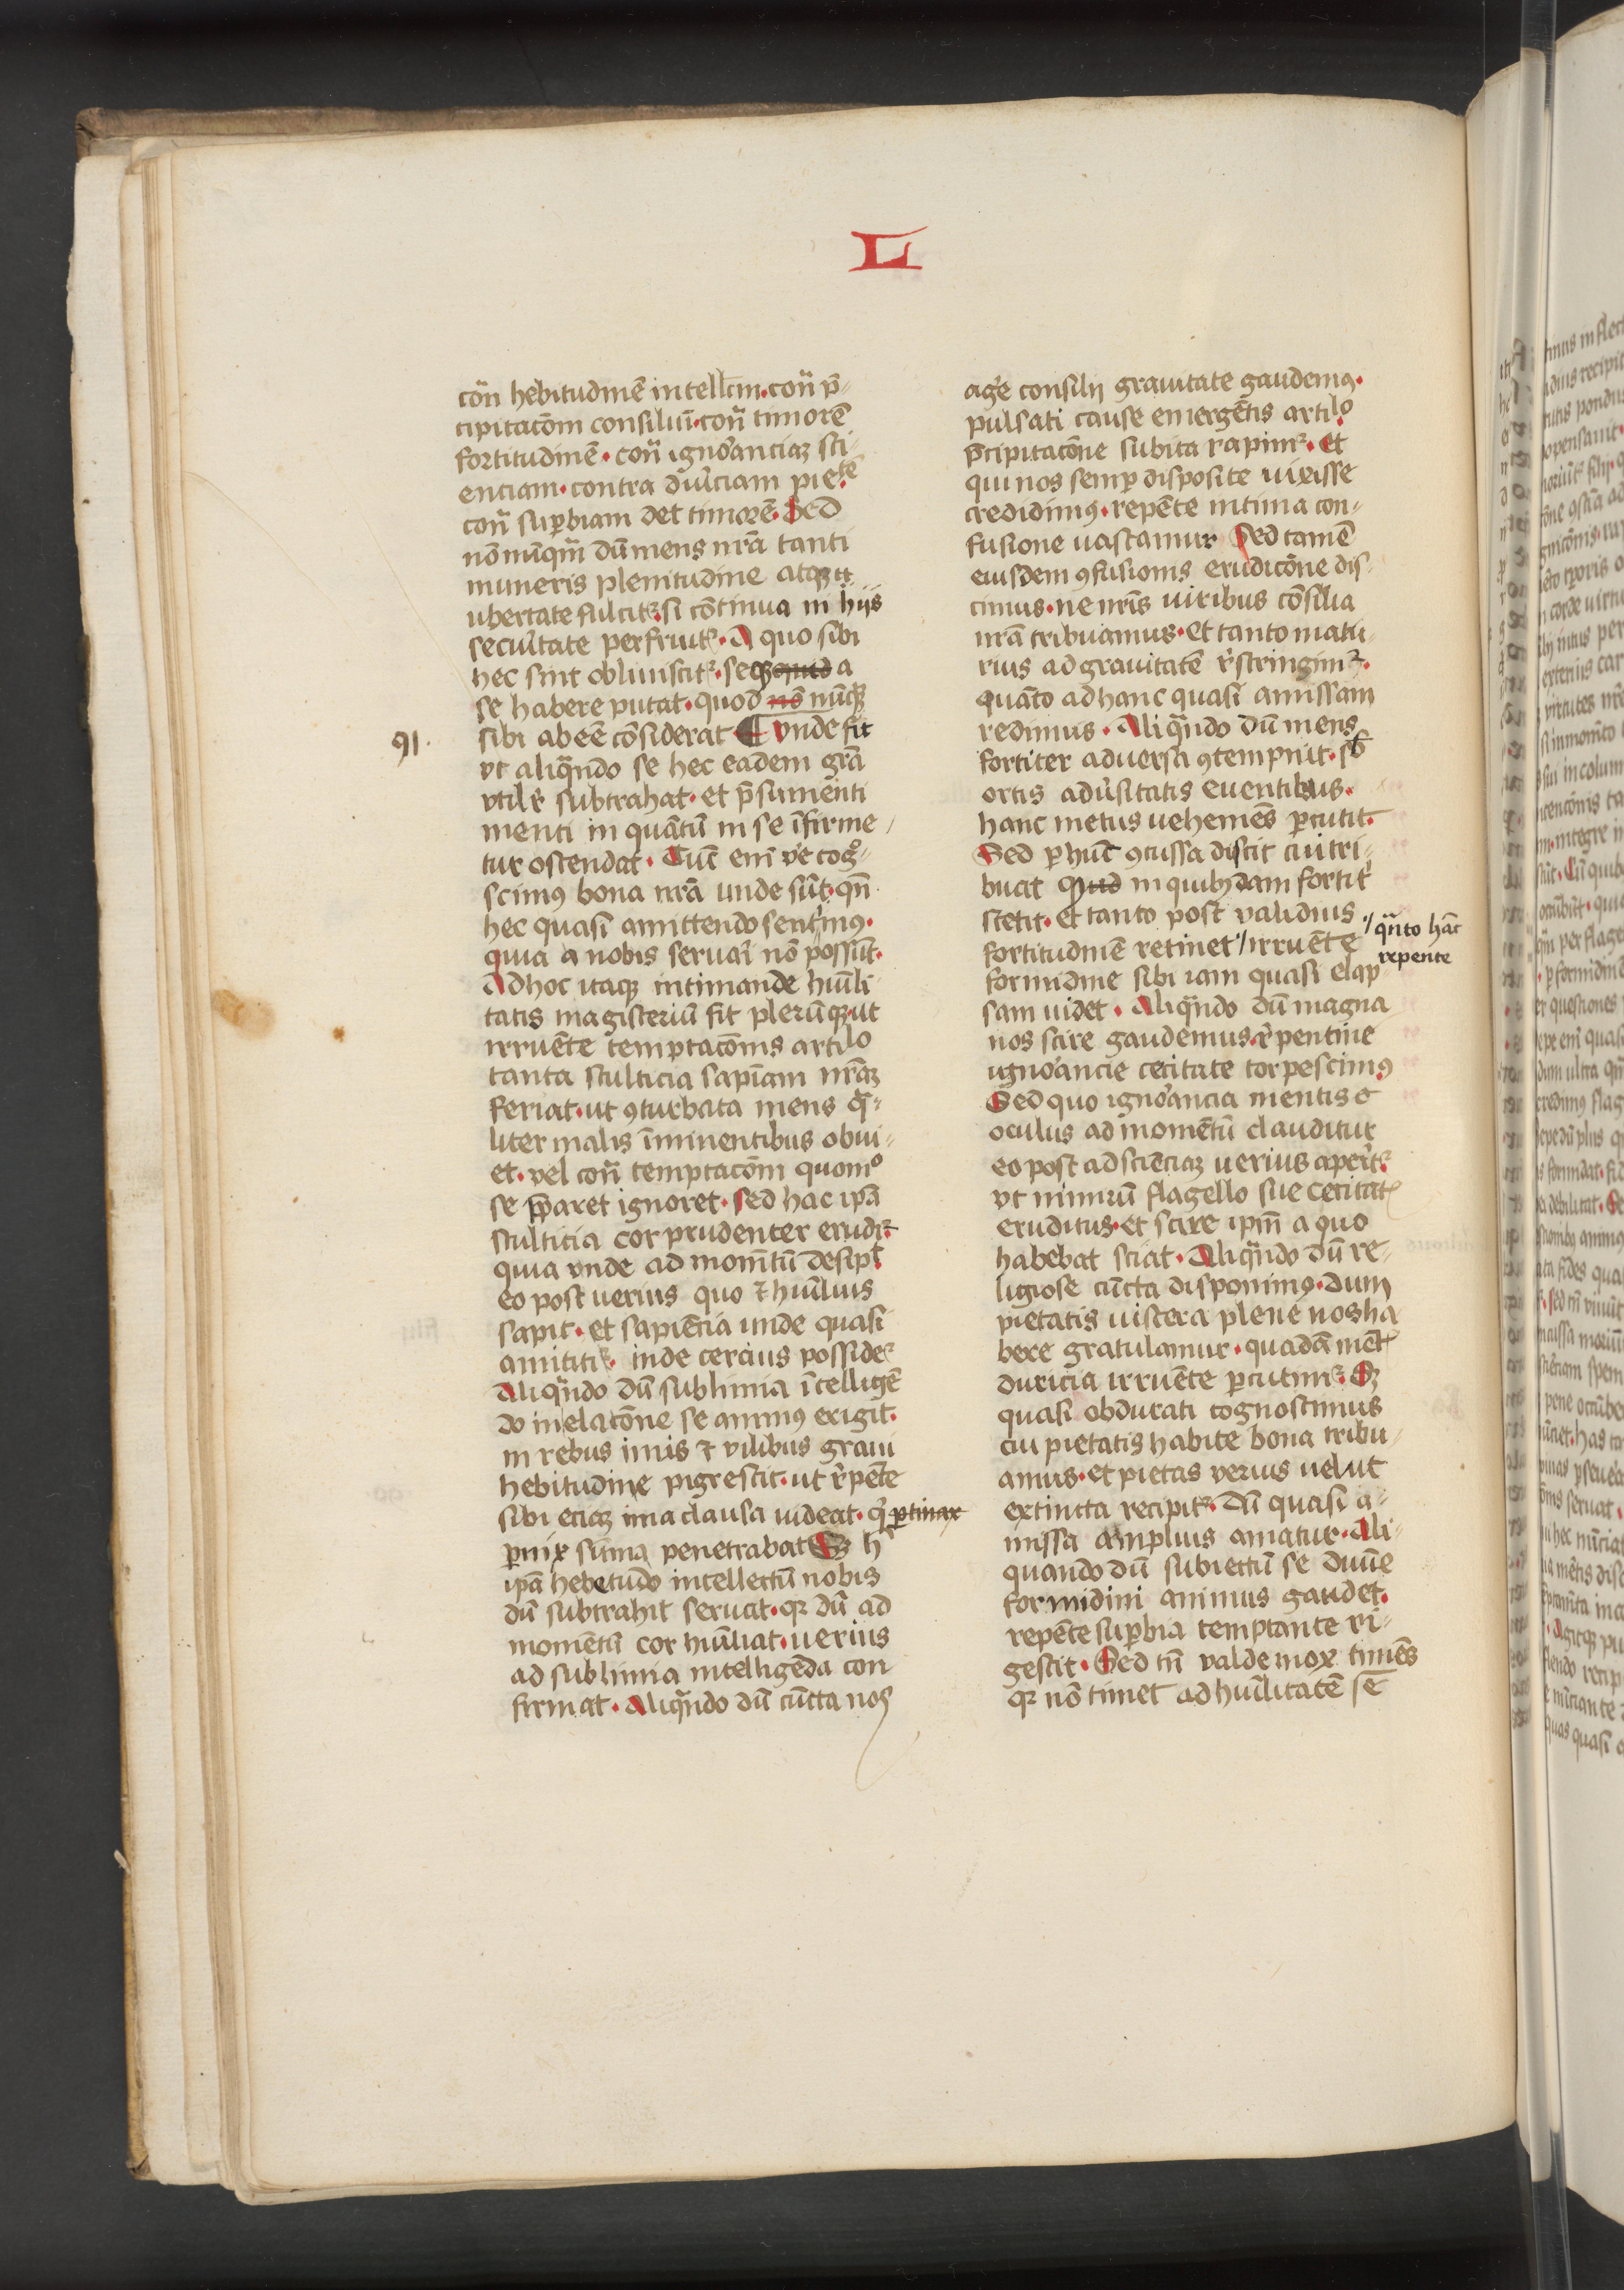 L
con̄ hebitudinē intellcm̄·con̄ p̄-
cipitacōm consiliūi·con̄ timorē
fortitudinē·con̄ ignorancia᷑ sci-
enciam·contra duriciam pietatē
con̄ suꝑbiam det timorē. Sed
nōnūqm̄ dū mens nr̄a tanti
muneris plenitudine atqꝫ
ubertate fulcit᷑·si cōtinua in hijs
secur̄itate perfruit᷑·A quo sibi
hec sint obliuiscit᷑·seqꝫ a
se habere putat·quod nō nūqꝫ
sibi abeē cōsiderat ¶ vnde fit
91.
vt aliqn̄do se hec eadem gr̄a
vtilr̄ subtrahat·et p̄sumenti
menti in quātū in se īfirme/
tur ostendat·Tūc eni v̄e cog-
scimꝰ bona nr̄a unde sūt·qn̄
hec quasi amittendo sentimꝰ·
quia a nobis seruari nō possūt·
Ad hoc itaqꝫ intimande humili
tatis magisteriū fit plerūqꝫ·ut
irruēte temptacōnis articulo
tanta stulticia sapiam nr̄aꝫ
feriat·ut ꝯturbata mens qua-
liter malis īminentibus obui-
et·vel con̄ temptacōm quomͦ
se p̄paret ignoret·sed hac ip̄a
stulticia cor prudenter erudit᷑
quia vnde ad momētū desipit
eo post uerius quo ⁊ humilius
sapit·et sapiēcia unde quasi
amittit᷑· inde cercius posside᷑
Aliqn̄do dū sublimia ītelligē
do in elacōne se animꝰ erigit·
in rebus imis ⁊ vilibus graui
hebitudine pigrescit·ut rēpēte
sibi eciaꝫ ima clausa uideat·qui ꝑtinax
ꝑnix sūma penetrabat Sꝫ h̄
ip̄a hebetudo intellectū nobis
dū subtrahit seruat·qꝛ dū ad
momētū cor humiliat·uerius
ad sublimia intelligēda con
firmat·Aliqn̄do dū cūcta nos
agere consilij grauitate gaudemꝰ·
pulsati cause emergētis articulo
p̄cipitacōne subita rapimꝛ·Et
qui nos semꝑ disposite uixisse
credidimꝰ·repēte intima con-
fusione uastamur Sed tamē
eiusdem ꝯfusionis erudicōne dis-
cimus·ne nrīs uiribus cōsilia
nr̄a tribuamus·Et tanto matu-
rius ad grauitatē rēstringimꝛ·
quāto ad hanc quasi amissam
redimus·Aliqn̄do dū mens
fortiter aduersa ꝯtempnit·sb
ortis aduersitatis euentibus·
hanc metus uehemēs ꝑcutit·
Sed ꝑ hūc ꝯcussa discit cui tri-
buat Quid in quibꝫdam fortit̄
stetit·Et tanto post validius
fortitudinē retinet // irruēte // qn̄to hāc
repente
formidine sibi iam quasi elap
sam uidet·Aliqn̄do dū magna
nos scire gaudemus·rēpentine
ignorancie cecitate torpescimꝰ
Sed quo ignorancia mentis
oculus ad momētū clauditur
eo post ad sciēciaꝫ uerius aperit᷑
vt nimirū flagello sue cecitatis
eruditus·et scire ipm̄ a quo
habebat sciat·Aliqn̄do dū re-
ligiose cūcta disponimꝰ·dum
pietatis uiscera plene nos ha
bere gratulamur·quadā mētis
duricia irruēte ꝑcutimꝛ·Sꝫ
quasi obdurati cognoscimus
cui pietatis habite bona tribu-
amus·et pietas verius uelut
extincta recipit᷑·dū quasi a-
missa amplius amatur·Ali-
quando dū subiectū se diuīe
formidini animus gaudet·
repēte suꝑbia temptante ri-
gescit·Sed tn̄ valde mox timēs
qꝛ nō timet ad humilitatē sē